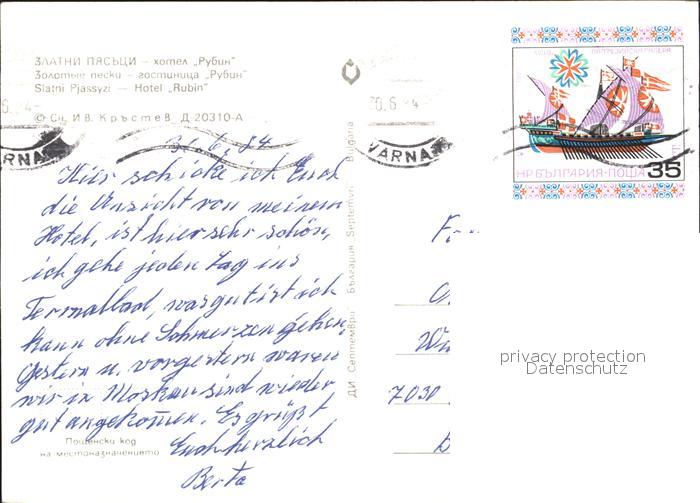 ЗЛАТНИ ПЯСЪЦИ — хотел „Рубин"
Золотые пески — гостиница „Рубин"
Slatni Pjassyzi — Hotel „Rubin"
© Сн. Ив. Кръстев Д-20310-А
.6.84
Hier schicke ich Euch
die Ansicht von meinem
Hotel, ist hier sehr schön,
ich gehe jeden Tag ins
Termalbad, was gut ist ich
kann ohne Schmerzen gehen,
gestern u. vorgestern waren
wir in Moskau sind wieder
gut angekommen. Es grüßt
Euch herzlich
Berta
Пощенски код
на местоназначението
ДИ Септември България Septemvri Bulgaria
VARNA
VARNA
НР БЪЛГАРИЯ·ПОЩА 35
7030
privacy protection
Datenschutz